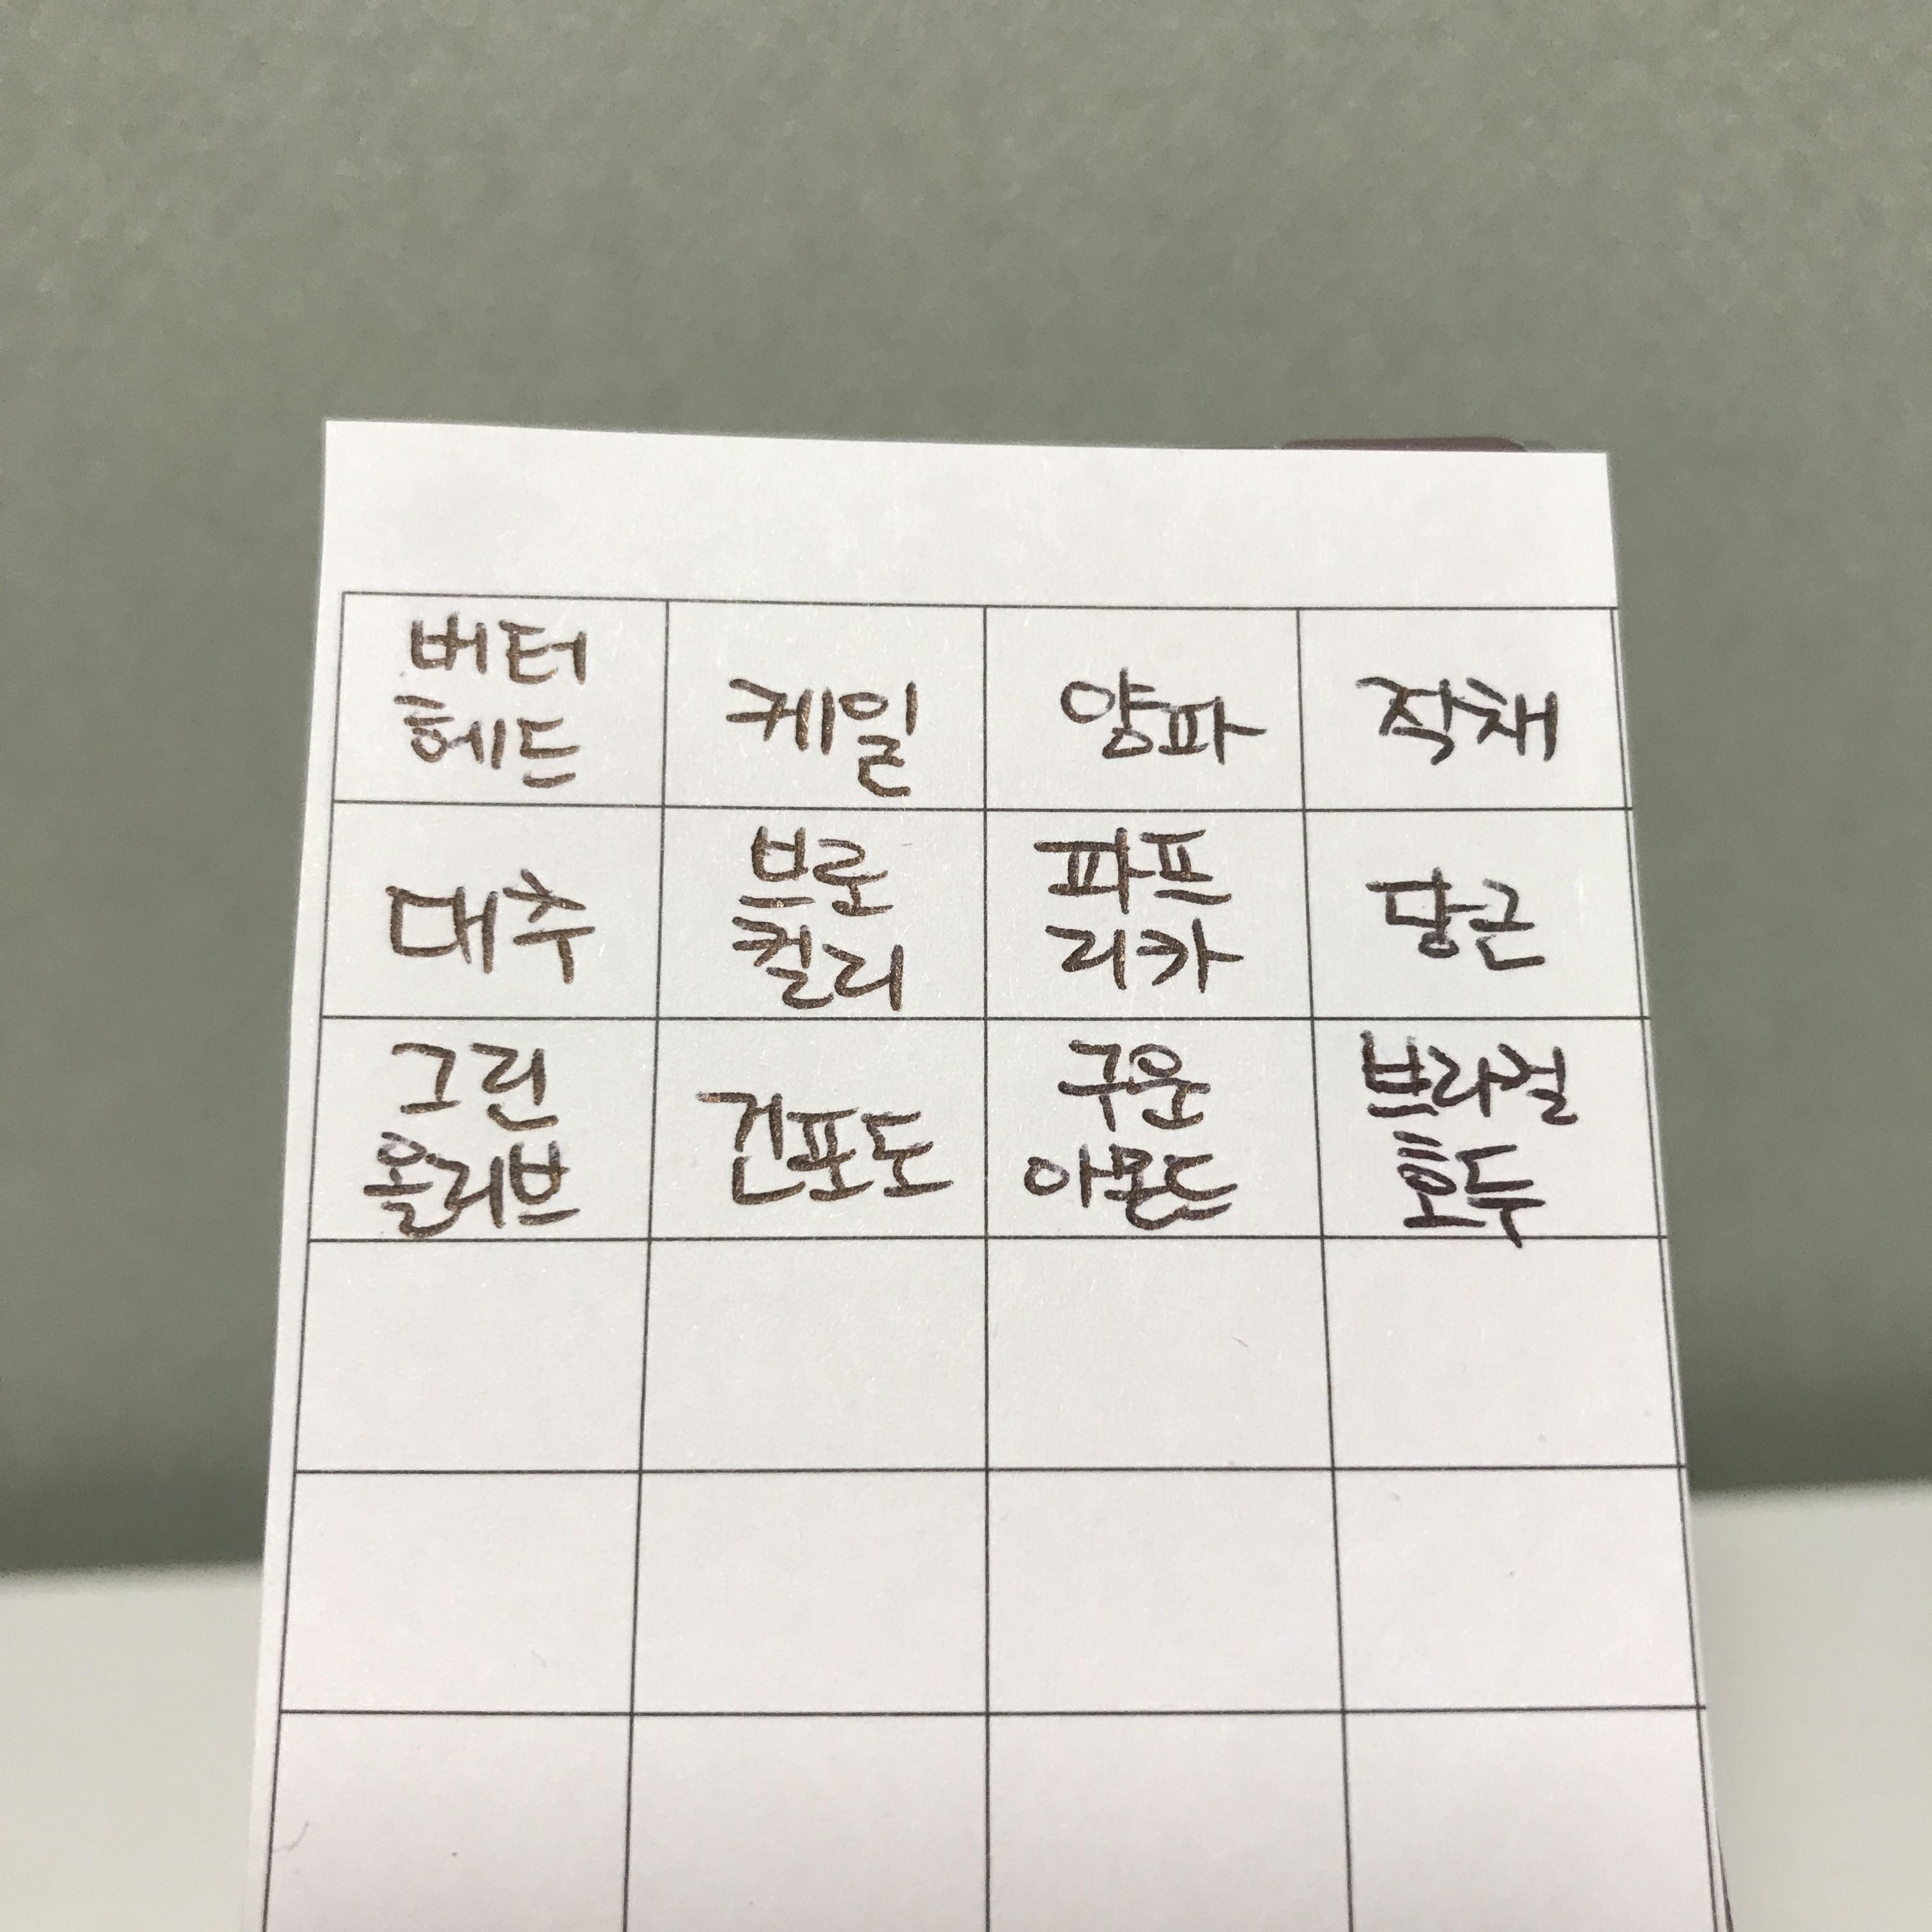 버터
헤드
케일
양파
적채
대추
브로
컬리
파프
리카
당근
그린
올리브
건포도
구운
아몬드
브라질
호두